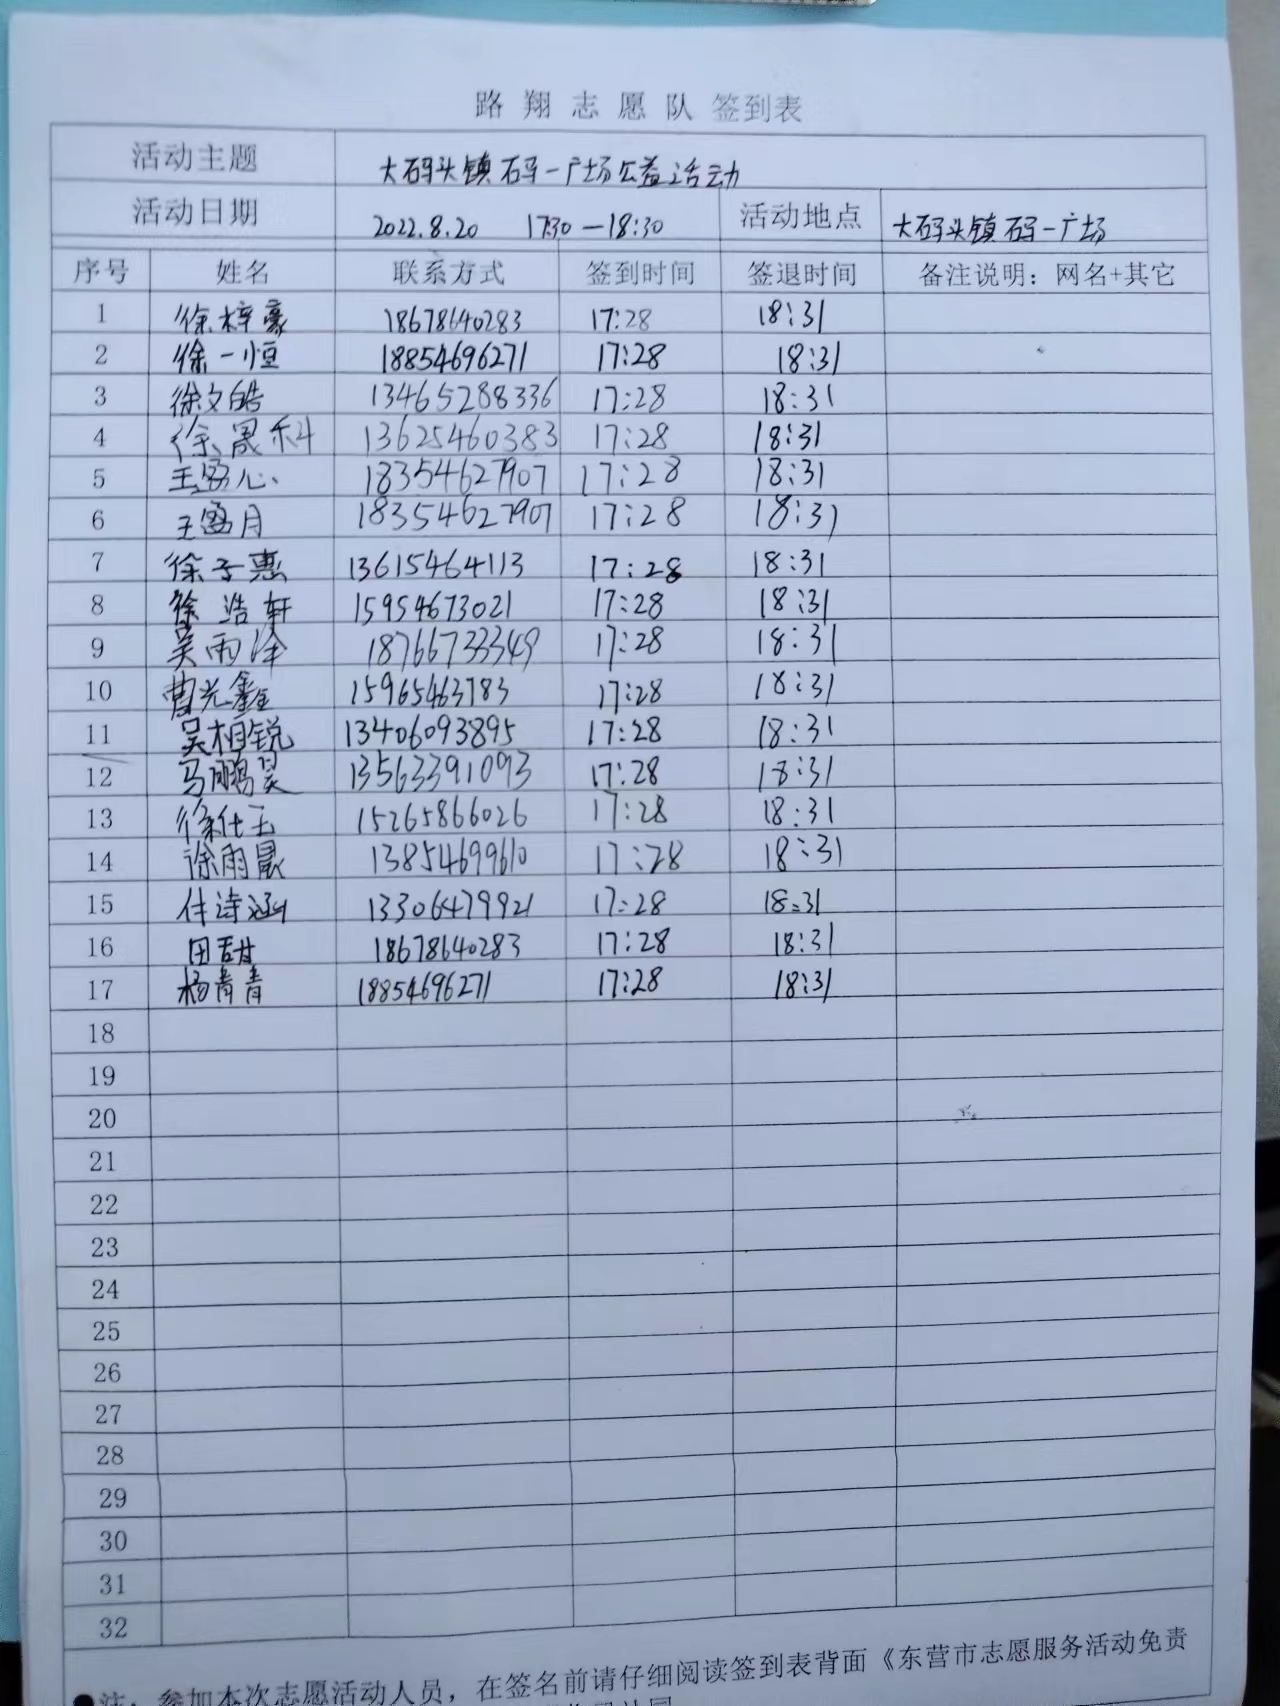 路翔志愿队签到表
活动主题 大码头镇码一广场公益活动
活动日期 2022.8.20 17:30—18:30 活动地点 大码头镇码一广场
序号 姓名 联系方式 签到时间 签退时间 备注说明：网名+其它
1 徐梓豪 18678640283 17:28 18:31
2 徐一恒 18854696271 17:28 18:31
3 徐文皓 13465288336 17:28 18:31
4 徐晟科 13625460383 17:28 18:31
5 王盈心 18354627907 17:28 18:31
6 王盈月 18354627907 17:28 18:31
7 徐子惠 13615464113 17:28 18:31
8 徐浩轩 15954673021 17:28 18:31
9 吴雨泽 18766733349 17:28 18:31
10 曹光鑫 15965463783 17:28 18:31
11 吴相锐 13406093895 17:28 18:31
12 马鹏昊 13563391093 17:28 18:31
13 徐仕玉 15265866026 17:28 18:31
14 徐雨晨 13854699610 17:28 18:31
15 诗涵 13306479921 17:28 18:31
16 田甜 18678640283 17:28 18:31
17 杨青青 18854696271 17:28 18:31
18
19
20
21
22
23
24
25
26
27
28
29
30
31
32
●注：参加本次志愿活动人员，在签名前请仔细阅读签到表背面《东营市志愿服务活动免责